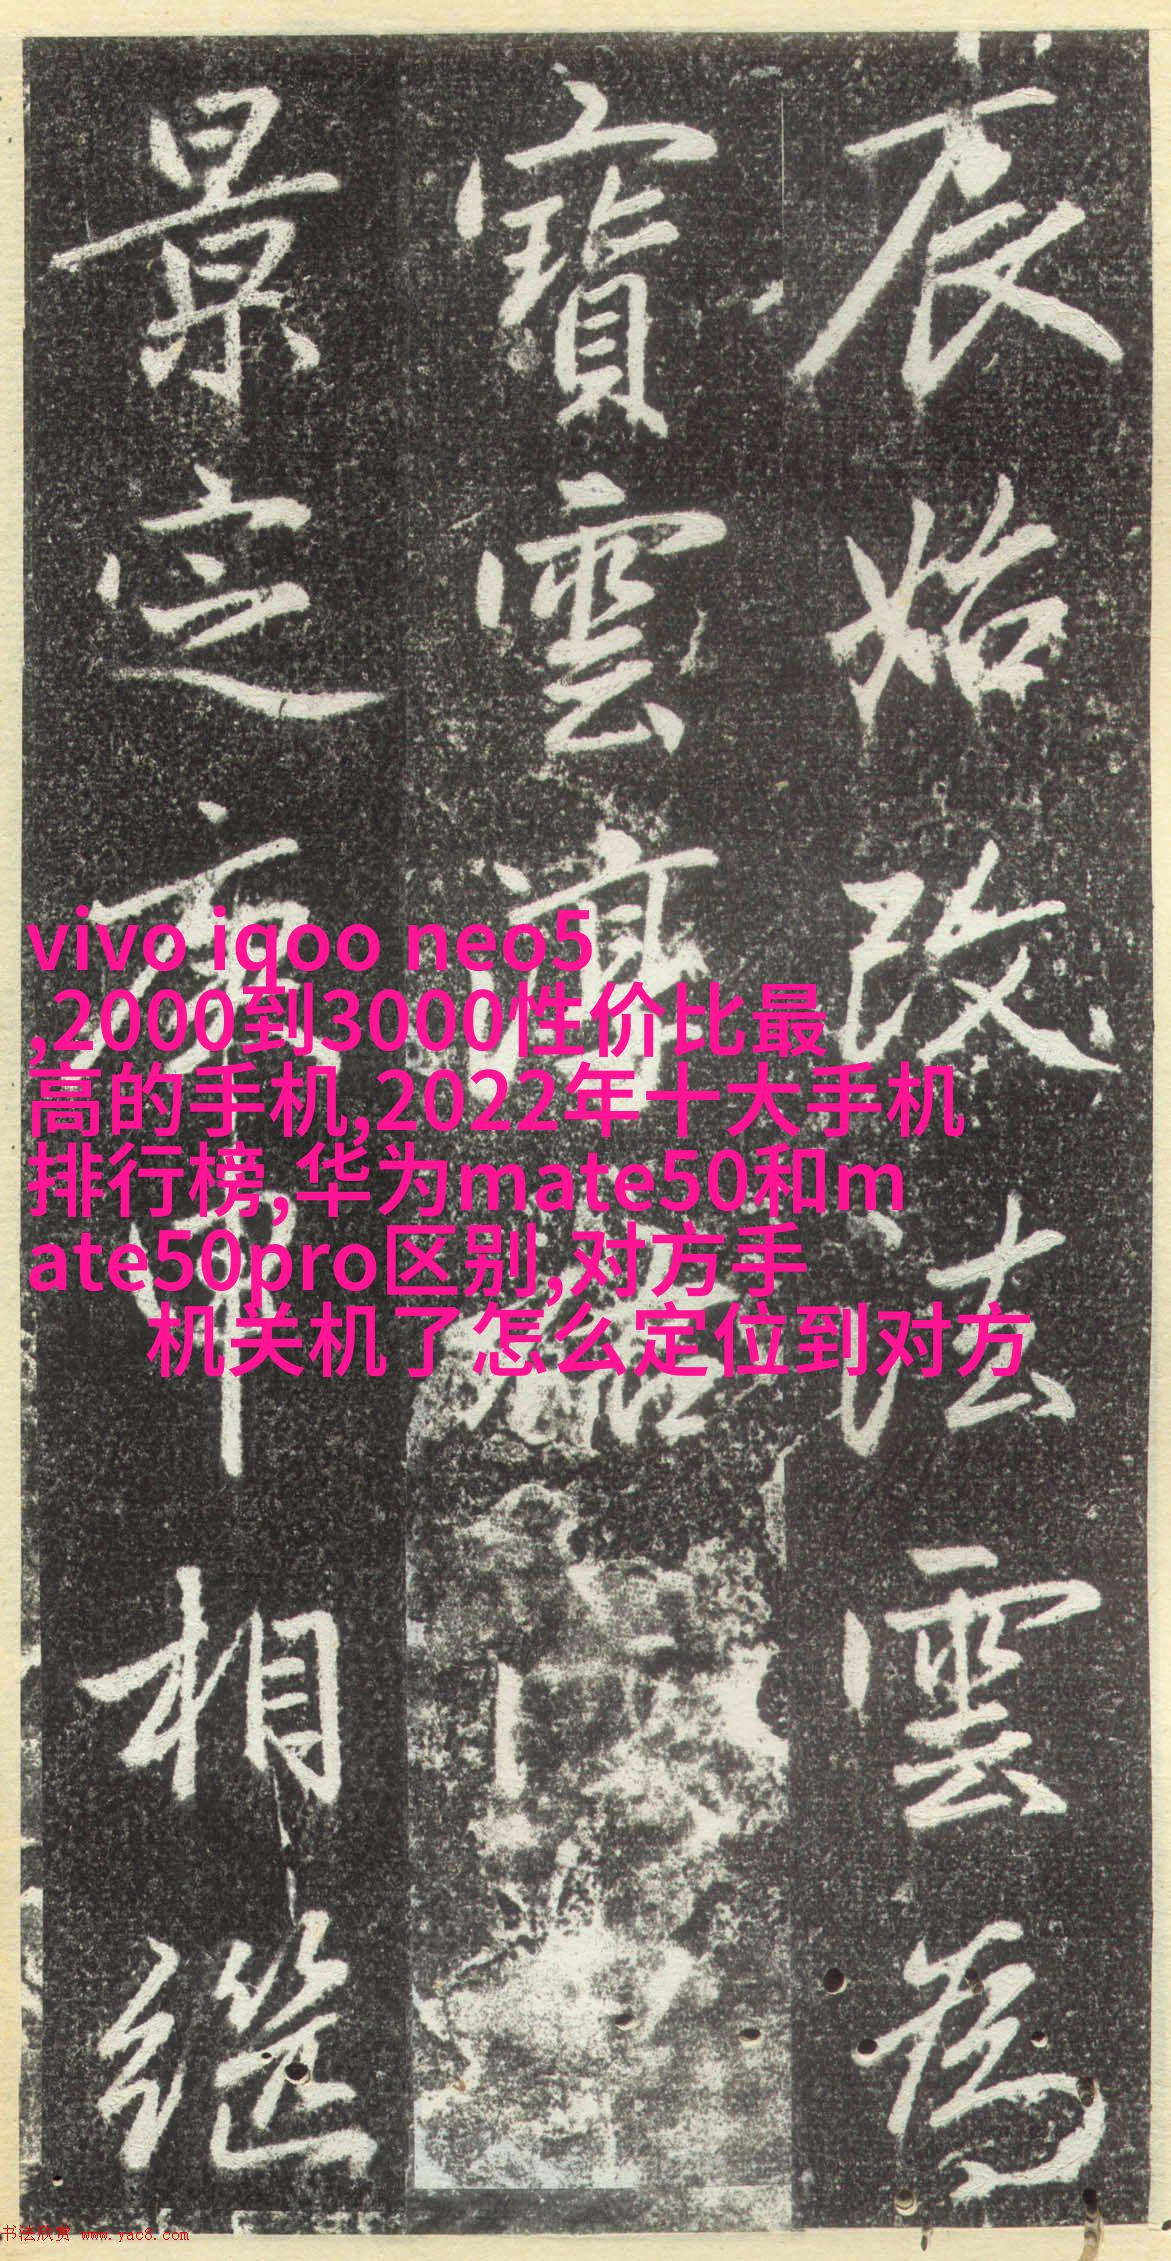 辰始改法雲為
寶雲
景定庚申相繼
vivo iqoo neo5
,2000到3000性价比最
高的手机,2022年十大手机
排行榜,华为mate50和m
ate50pro区别,对方手
机关机了怎么定位到对方
书法欣赏 www.yac8.com